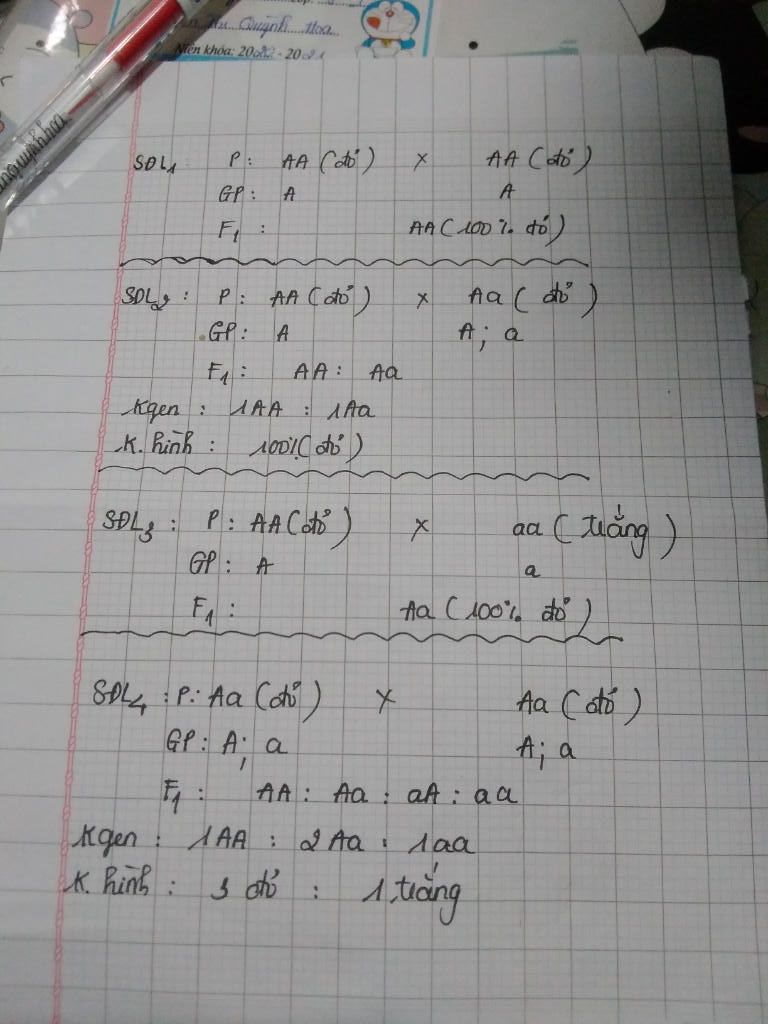 Quỳnh Hoa
Niên khóa: 20 - 20
SĐL1: P: AA (đỏ) x AA (đỏ)
GP: A A
F1 : AA (100% đỏ)
SĐL2 : P: AA (đỏ) x Aa (đỏ)
GP: A A; a
F1 : AA : Aa
Kgen : 1AA : 1Aa
K. hình : 100% (đỏ)
SĐL3 : P: AA (đỏ) x aa (trắng)
GP: A a
F1 : Aa (100% đỏ)
SĐL4 : P: Aa (đỏ) x Aa (đỏ)
GP: A; a A; a
F1 : AA : Aa : aA : aa
Kgen : 1AA : 2Aa : 1aa
K. hình : 3 đỏ : 1 trắng